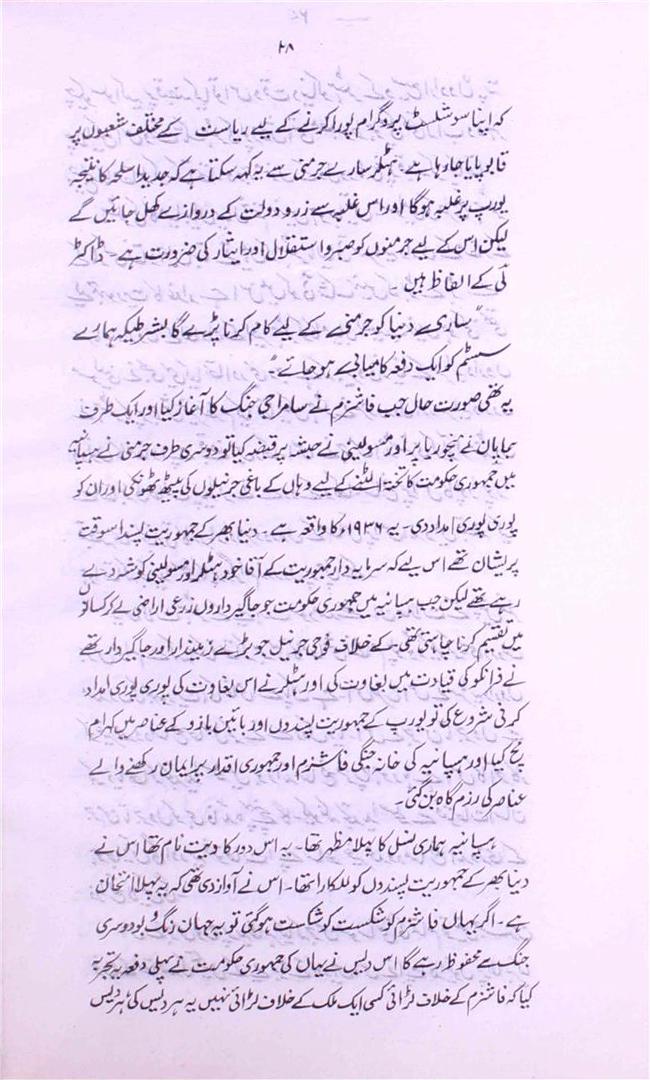 ۲۸
کہ اپنا سوشلسٹ پروگرام پورا کرنے کے لیے ریاست کے مختلف شعبوں پر
قابو پایا جا رہا ہے۔ ہٹلر سارے جرمنی سے یہ کہہ سکتا ہے کہ جدید اسلحہ کا نتیجہ
یورپ پر غلبہ ہوگا اور اس غلبہ سے زر و دولت کے دروازے کھل جائیں گے
لیکن اس کے لیے جرمنوں کو صبر و استقلال اور ایثار کی ضرورت ہے۔ ڈاکٹر
لی کے الفاظ ہیں
"ساری دنیا کو جرمنے کے لیے کام کرنا پڑے گا بشرطیکہ ہمارے
سسٹم کو ایک دفعہ کامیابی ہو جائے"۔
یہ تھی صورت حال جب فاشزم نے سامراجی جنگ کا آغاز کیا اور ایک طرف
جاپان نے منچوریا پر اور مسولینی نے حبشہ پر قبضہ کیا تو دوسری طرف جرمنی نے ہسپانیہ
میں جمہوری حکومت کا تختہ الٹنے کے لیے وہاں کے باغی جرنیلوں کی پیٹھ ٹھونکی اور ان کو
پوری پوری امداد دی۔ یہ ۱۹۳۶ء کا واقعہ ہے۔ دنیا بھر کے جمہوریت پسند اسوقت
پریشان تھے اس لیے کہ سرمایہ دار جمہوریت کے آقا خود ہٹلر اور مسولینی کو شہ دے
رہے تھے لیکن جب ہسپانیہ میں جمہوری حکومت جو جاگیرداروں زرعی اراضی لے کر کسانوں
میں تقسیم کرنا چاہتی تھی۔ کے خلاف فوجی جرنیل جو بڑے زمیندار اور جاگیردار تھے
نے فرانکو کی قیادت میں بغاوت کی اور ہٹلر نے اس بغاوت کی پوری پوری امداد
کرنی شروع کی تو یورپ کے جمہوریت پسندوں اور بائیں بازو کے عناصر میں کہرام
مچ گیا اور ہسپانیہ کی خانہ جنگی فاشزم اور جمہوری اقدار پر ایمان رکھنے والے
عناصر کی رزم گاہ بن گئی۔
ہسپانیہ ہماری نسل کا پہلا مظہر تھا۔ یہ اس دور کا ویت نام تھا اس نے
دنیا بھر کے جمہوریت پسندوں کو للکارا تھا۔ اس نے آواز دی تھی کہ یہ پہلا امتحان
ہے۔ اگر یہاں فاشزم کو شکست کو شکست ہو گئی تو یہ جہان رنگ و بو دوسری
جنگ سے محفوظ رہے گا اس دیس نے یہاں کی جمہوری حکومت نے پہلی دفعہ یہ تجربہ
کیا کہ فاشزم کے خلاف لڑائی کسی ایک ملک کے خلاف لڑائی نہیں یہ ہر دیس کی، ہر دیس